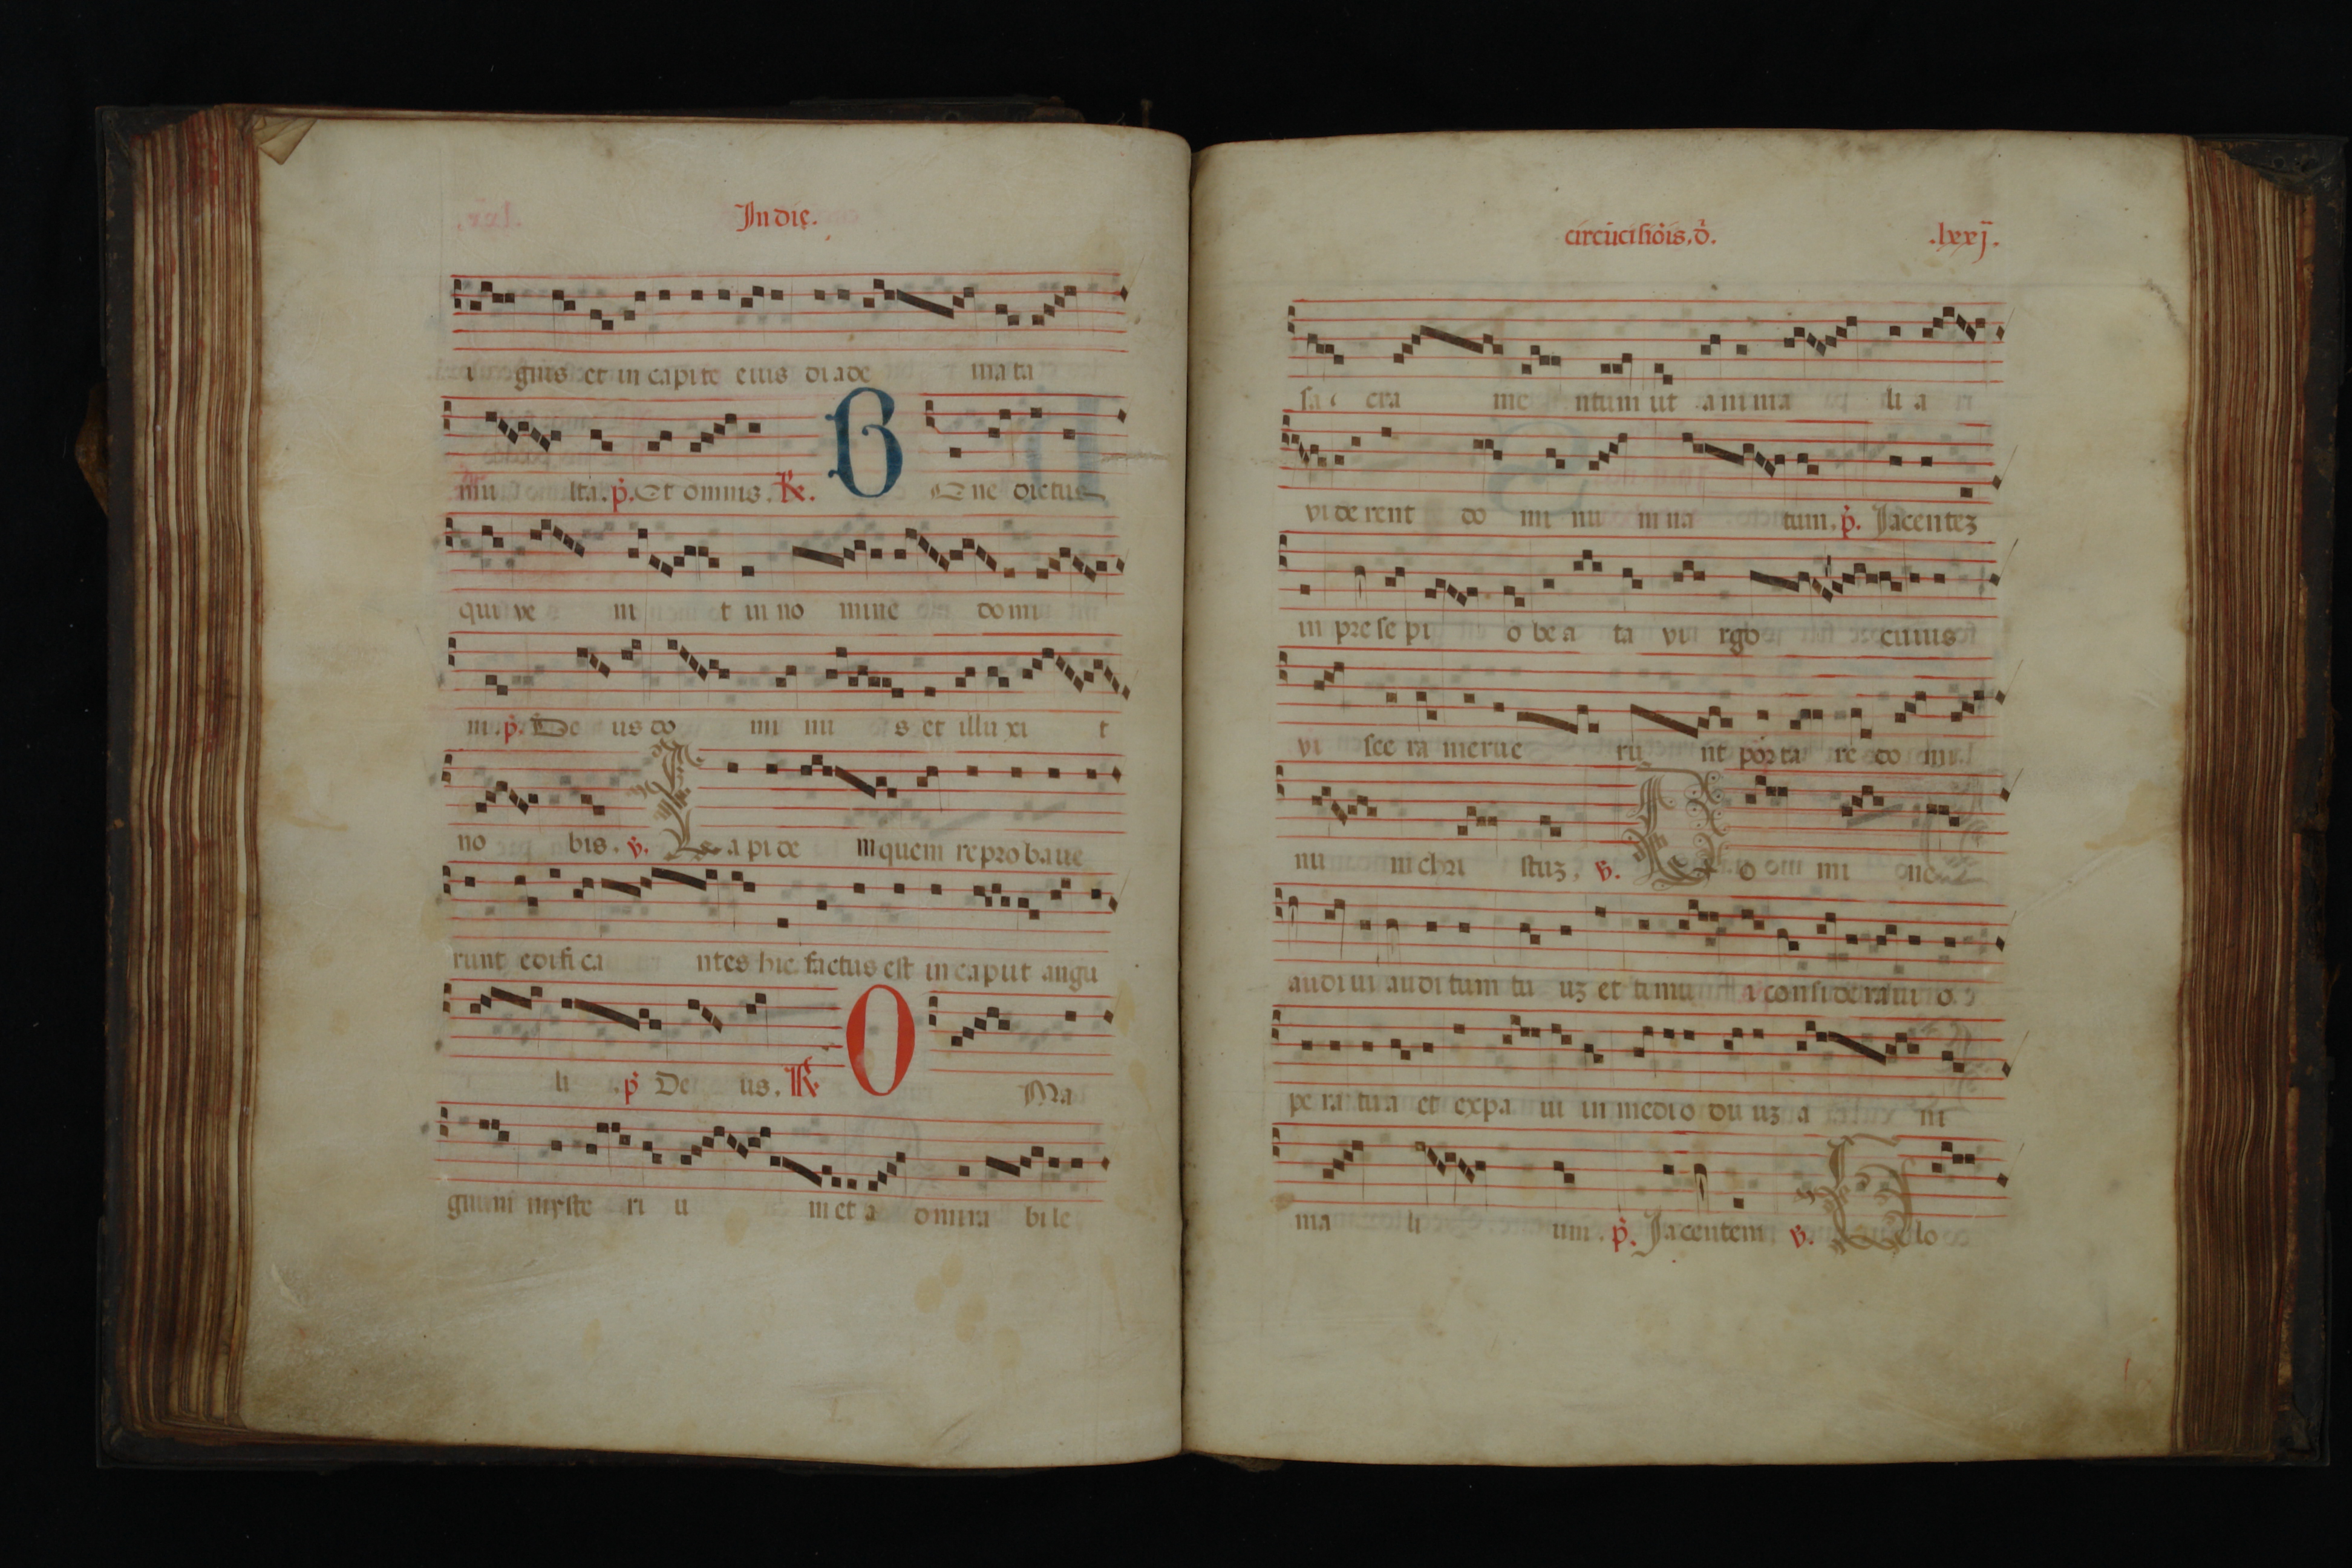 In die.
i gnis et in capite eius di a de ma ta
mu lta. p̄. Et omnis. R. B E ne dictus
qui ve ni t in no mine do mi
ni. p̄. De us do mi nu s et illu xi t
no bis. v̄. L a pi de m quem repro baue
runt edifi ca ntes hic factus est in caput angu
li p̄ De us. R O Ma
gnum myste ri u m et a dmira bi le
circūcisiōis. d̄. .lxxj.
sa cra me ntum ut a ni ma li a
vi de rent do mi nu m na tum. p̄. Jacentez
in pre se pi o be a ta vi rgo cuius
vi sce ra merue ru nt porta re do mi
nu m chri stuz. v̄. D o mi ne
audi ui audi tum tu uz et timu i consideraui o
pe ra tua et expa ui in medio du uz a ni
ma li um. p̄. Jacentem v̄.